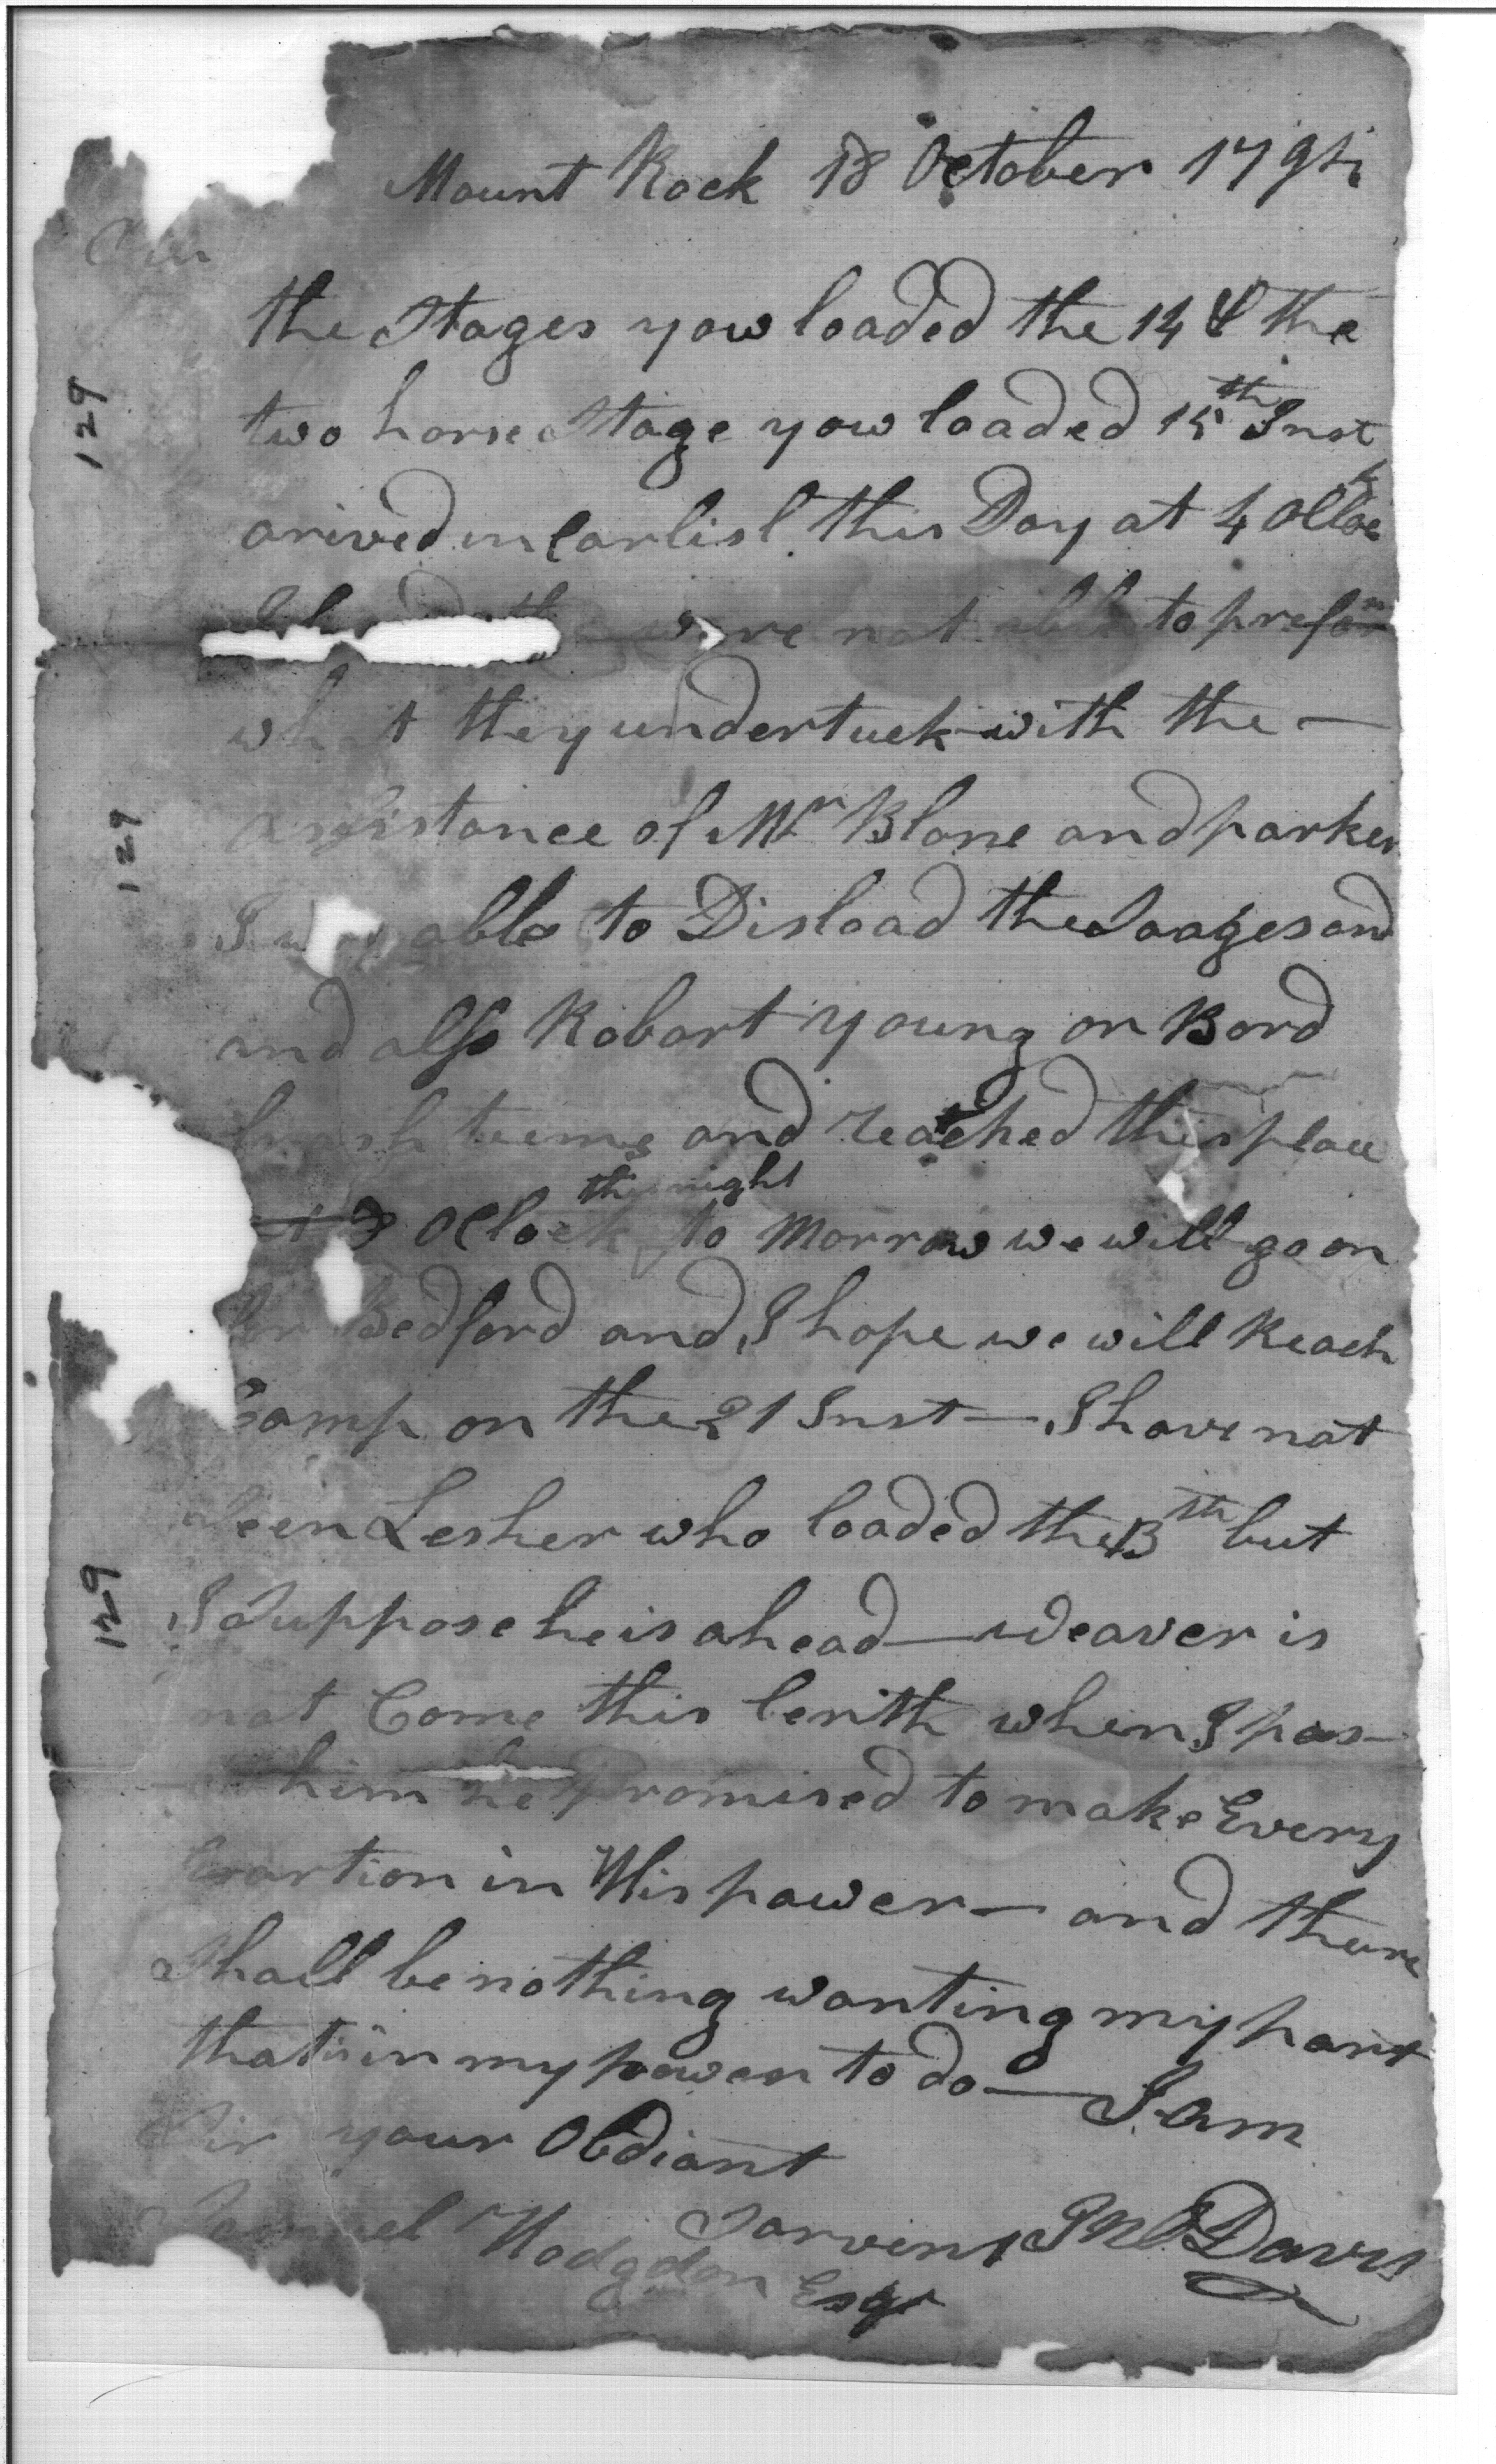 Mount Rock 18 October 1794
Sir
the Stages yow loaded the 14 & the
two horse Stage yow loaded 15th Inst
arived in Carlisl this Day at 4 OCloc
k
were not able to preform
what they undertuck with the —
assistance of Mr Blane and parker
I was able to Disload the Saages and
and also Robart young on Bord
teems and reached this place
O Clock this night to Morrow we will go on
for Bedford and I hope we will Reach
Camp on the 21 Inst — I have not
Seen Lesher who loaded the 13th but
I Suppose he is ahead — Weaver is
not Come this lenth when I pas—
him he Promised to make Every
Exartion in His pawer — and theire
Shall be nothing wanting my part
that is in my power to do — I am
Sir your Obdiant
Sarvent Jno Davis
Samuel Hodgdon Esqr
129
129
129